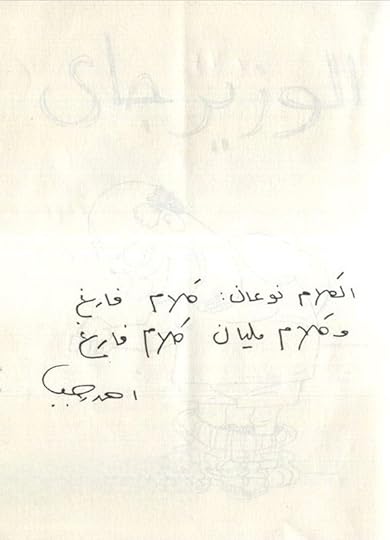 الوزير جاى
الكلام نوعان: كلام فارغ
وكلام مليان كلام فارغ
احمد رجب